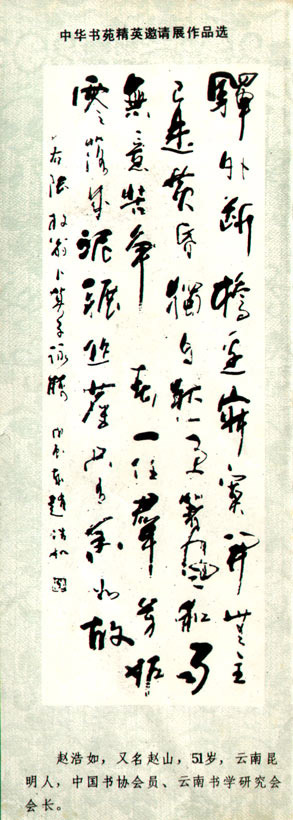 中华书苑精英邀请展作品选
驛外斷橋邊寂寞開無主
已是黄昏獨自愁更著風和雨
無意苦争春一任羣芳妬
零落成泥碾作塵只有香如故
右陸放翁卜算子詠梅 戊辰春趙浩如
赵浩如，又名赵山，51岁，云南昆
明人，中国书协会员、云南书学研究会
会长。